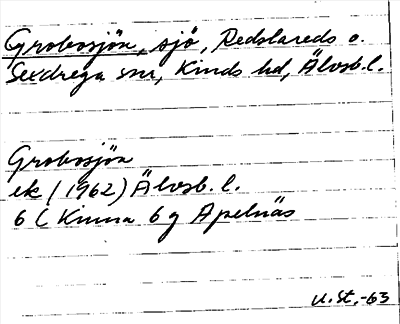 Grobosjön, sjö, Redslareds o.
Sexdrega snr, Kinds hd, Älvsb.l.
Grobosjön
ek (1962) Älvsb. l.
6 C Kinna 6 g Apelnäs
U.St.-63